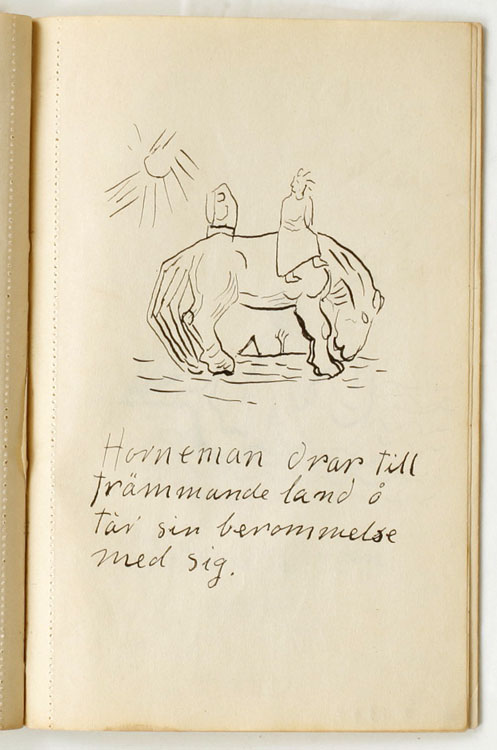 Horneman drar till
främmande land å
tär sin berömmelse
med sig.